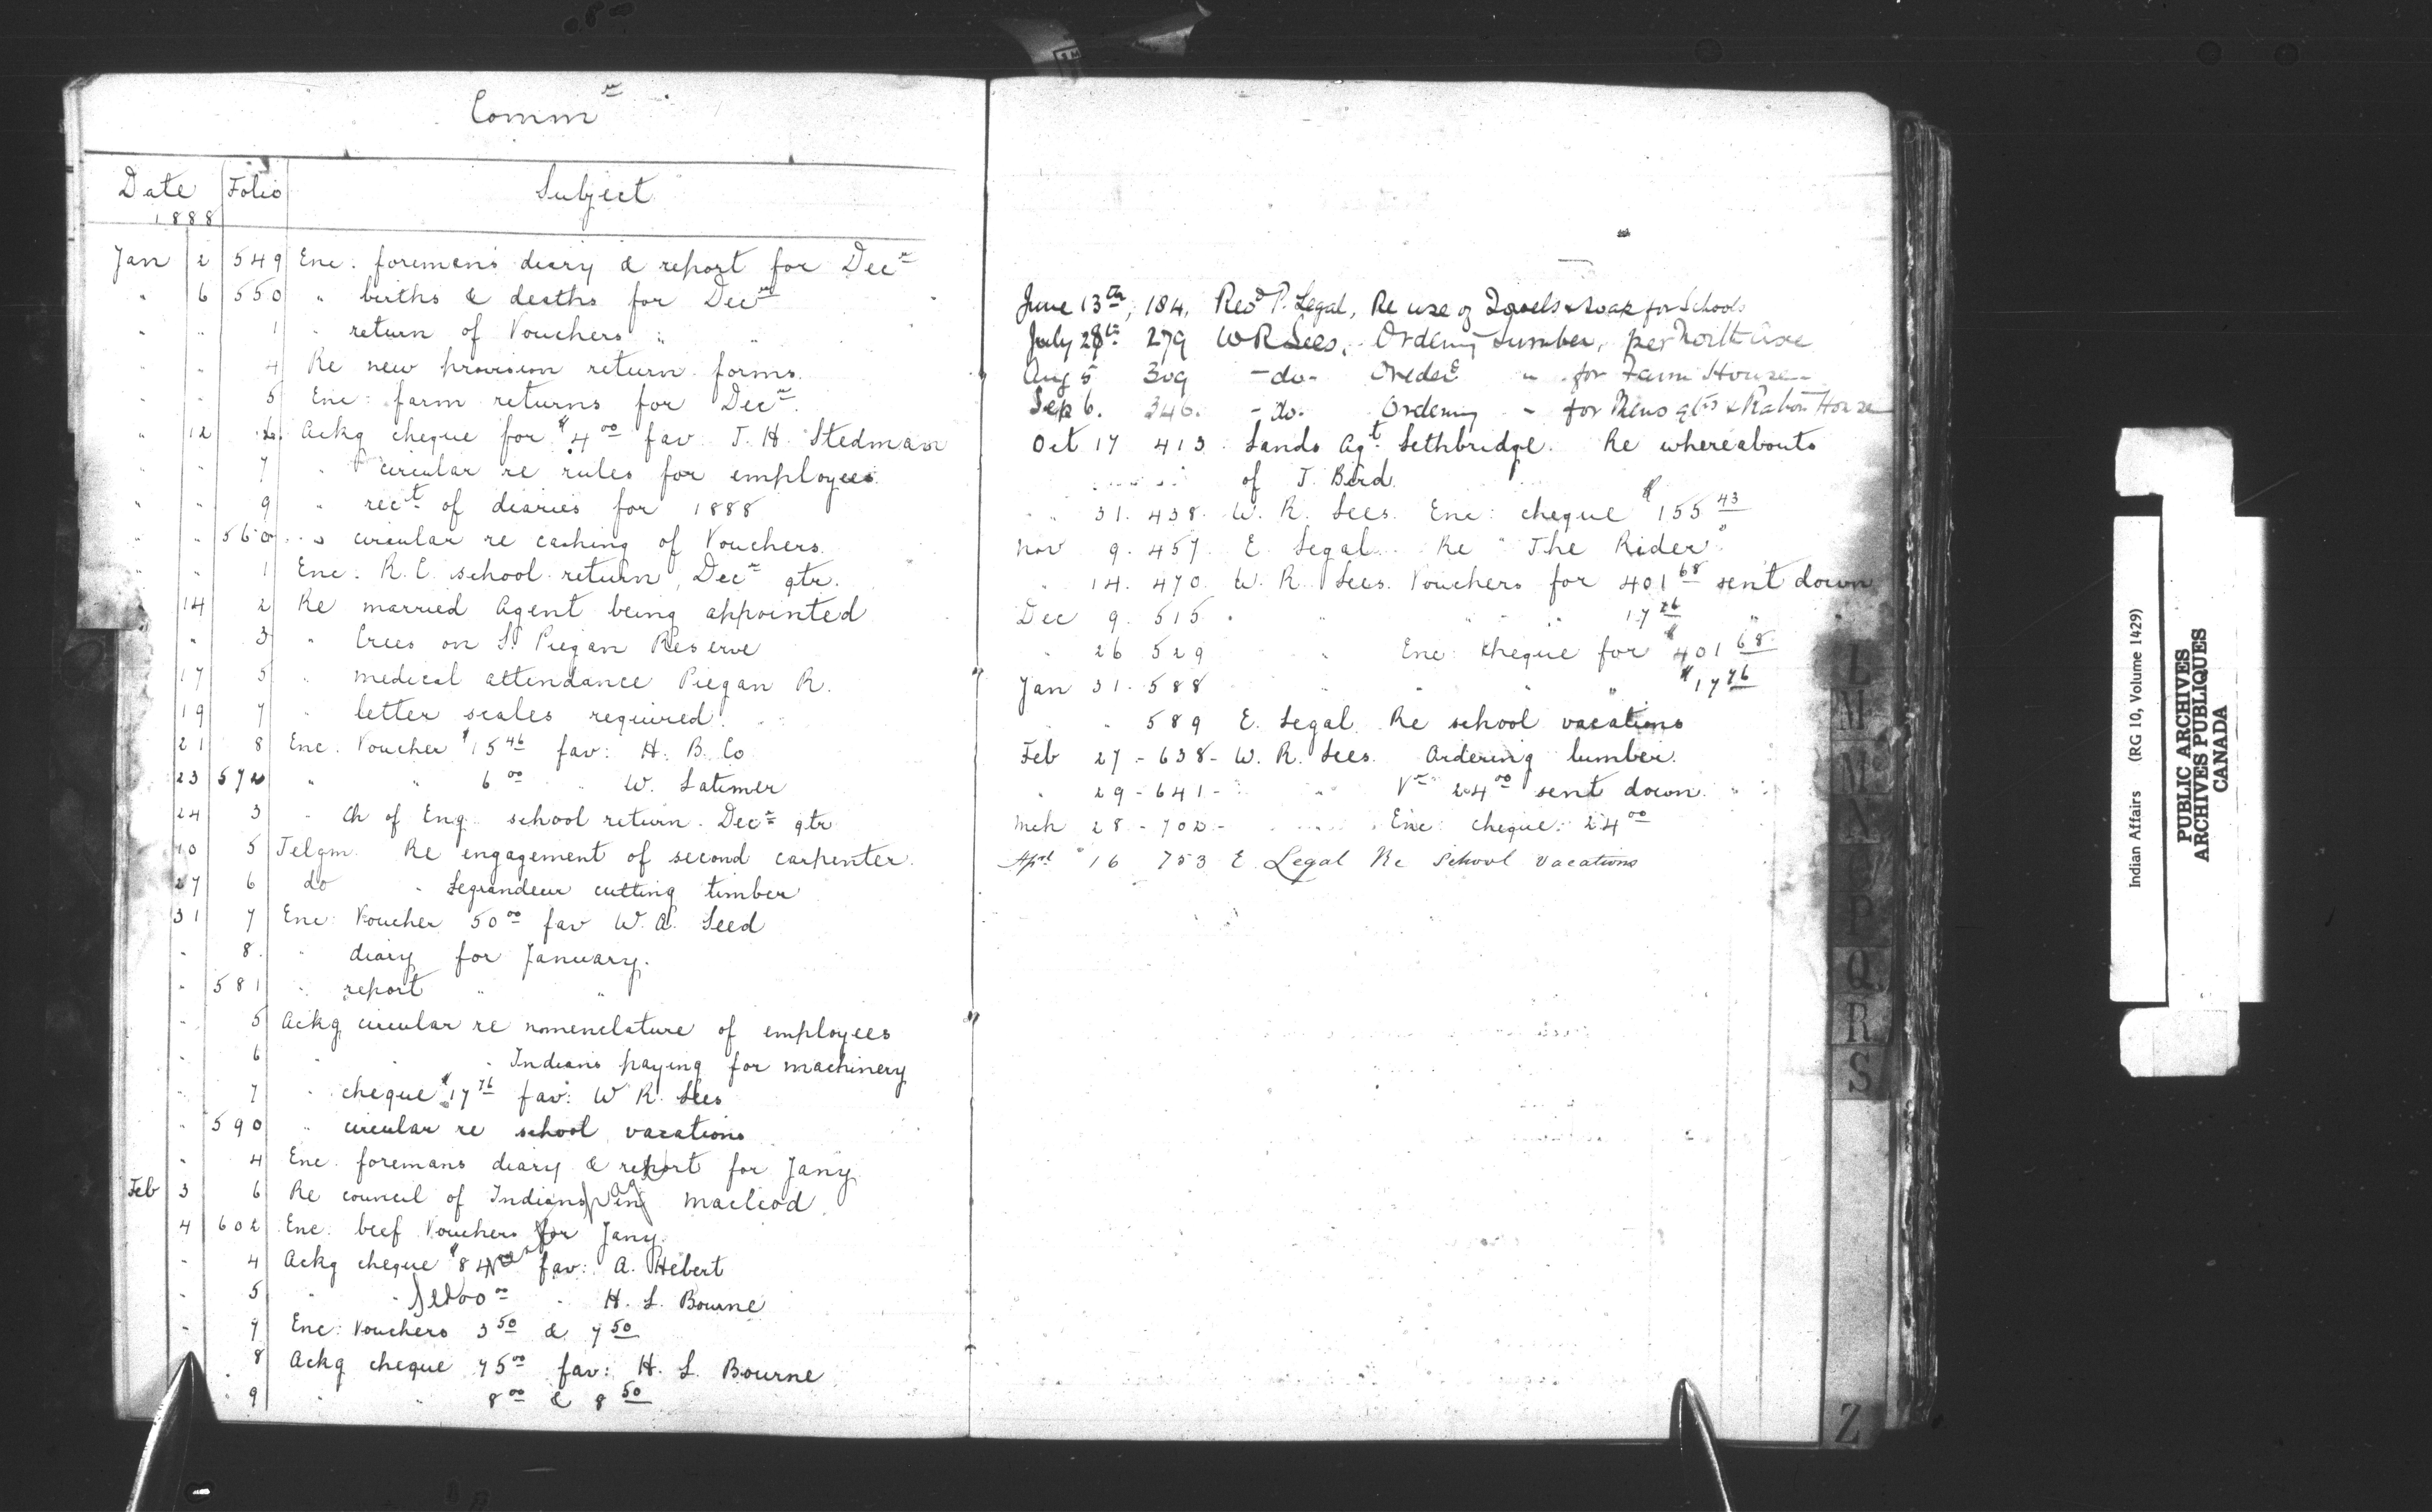 Comm r
Date Folio Subject
1888
Jan 2 549 Enc. foreman's diary & report for Decr
" 6 550 " births & deaths for Decr
" " 1 " return of Vouchers " "
" " 4 Re new provision return forms.
" " 5 Enc: farm returns for Decr.
" 12 6 Ackg cheque for $4 00 fav. J. H. Stedman
" " 7 " circular re rules for employees.
" " 9 " rect of diaries for 1888
" " 560 " circular re cashing of Vouchers.
" 1 Enc. R. C. school return, Decr qtr.
14 2 Re married Agent being appointed
" 3 " Crees on S. Piegan Reserve
17 5 " medical attendance Piegan R.
19 7 " letter scales required.
21 8 Enc. Voucher $15 46 fav: H. B. Co
23 572 " " 6 00 " W. Latimer
24 3 " Ch of Eng. school return. Decr qtr
10 5 Telgm. Re engagement of second carpenter.
27 6 do " Legrandeur cutting timber
31 7 Enc: Voucher 50 00 fav W. A. Seed
" 8. " diary for January.
" 581 " report " "
" 5 Ackg circular re nomenclature of employees
" 6 " " " Indians paying for machinery
" 7 " cheque $17 76 fav: W. R. Lees
" 590 " circular re school vacations
" 4 Enc. foremans diary & report for Jany
Feb 3 6 Re council of Indians in Macleod.
4 602 Enc. beef Vouchers for Jany.
" 4 Ackg cheque $84 fav: A. Hebert
" 5 " " 00 " H. L. Bourne
" 7 Enc: Vouchers 3 50 & 7 50
8 Ackg cheque 75 00 fav: H. L. Bourne
" 9 " " 8 00 & 8 50
June 13th, 184, Revd P. Legal, Re use of Towels & Soap for Schools
July 28th 279 W R Lees, Ordering Lumber, per North Axe
Aug 5 309 -do- Ordered " for Farm House -
Sep 6. 346. -do- Ordering " for Mens qtrs & Ration House
Oct 17 413 Lands Agt. Lethbridge. Re whereabouts
of J. Bird.
" 31. 438. W. R. Lees. Enc: cheque $155 43
Nov 9. 457. E. Legal. Re "The Rider"
" 14. 470. W. R. Lees. Vouchers for 401 68 sent down
Dec 9. 515. " " " 17 76 "
" 26 529 " Enc: cheque for $401 68
Jan 31. 588 " " " " $17 76
" " 589 E. Legal. Re school vacations
Feb 27 - 638 - W. R. Lees. Ordering lumber.
" 29 - 641 - " " Vr 24 00 sent down.
Mch 28 - 702 - Enc: cheque: 24 00
Aprl 16 753 E. Legal Re School Vacations
L
M
Mc
N
O
P
Q
R
S
Z
Indian Affairs (RG 10, Volume 1429)
PUBLIC ARCHIVES
ARCHIVES PUBLIQUES
CANADA